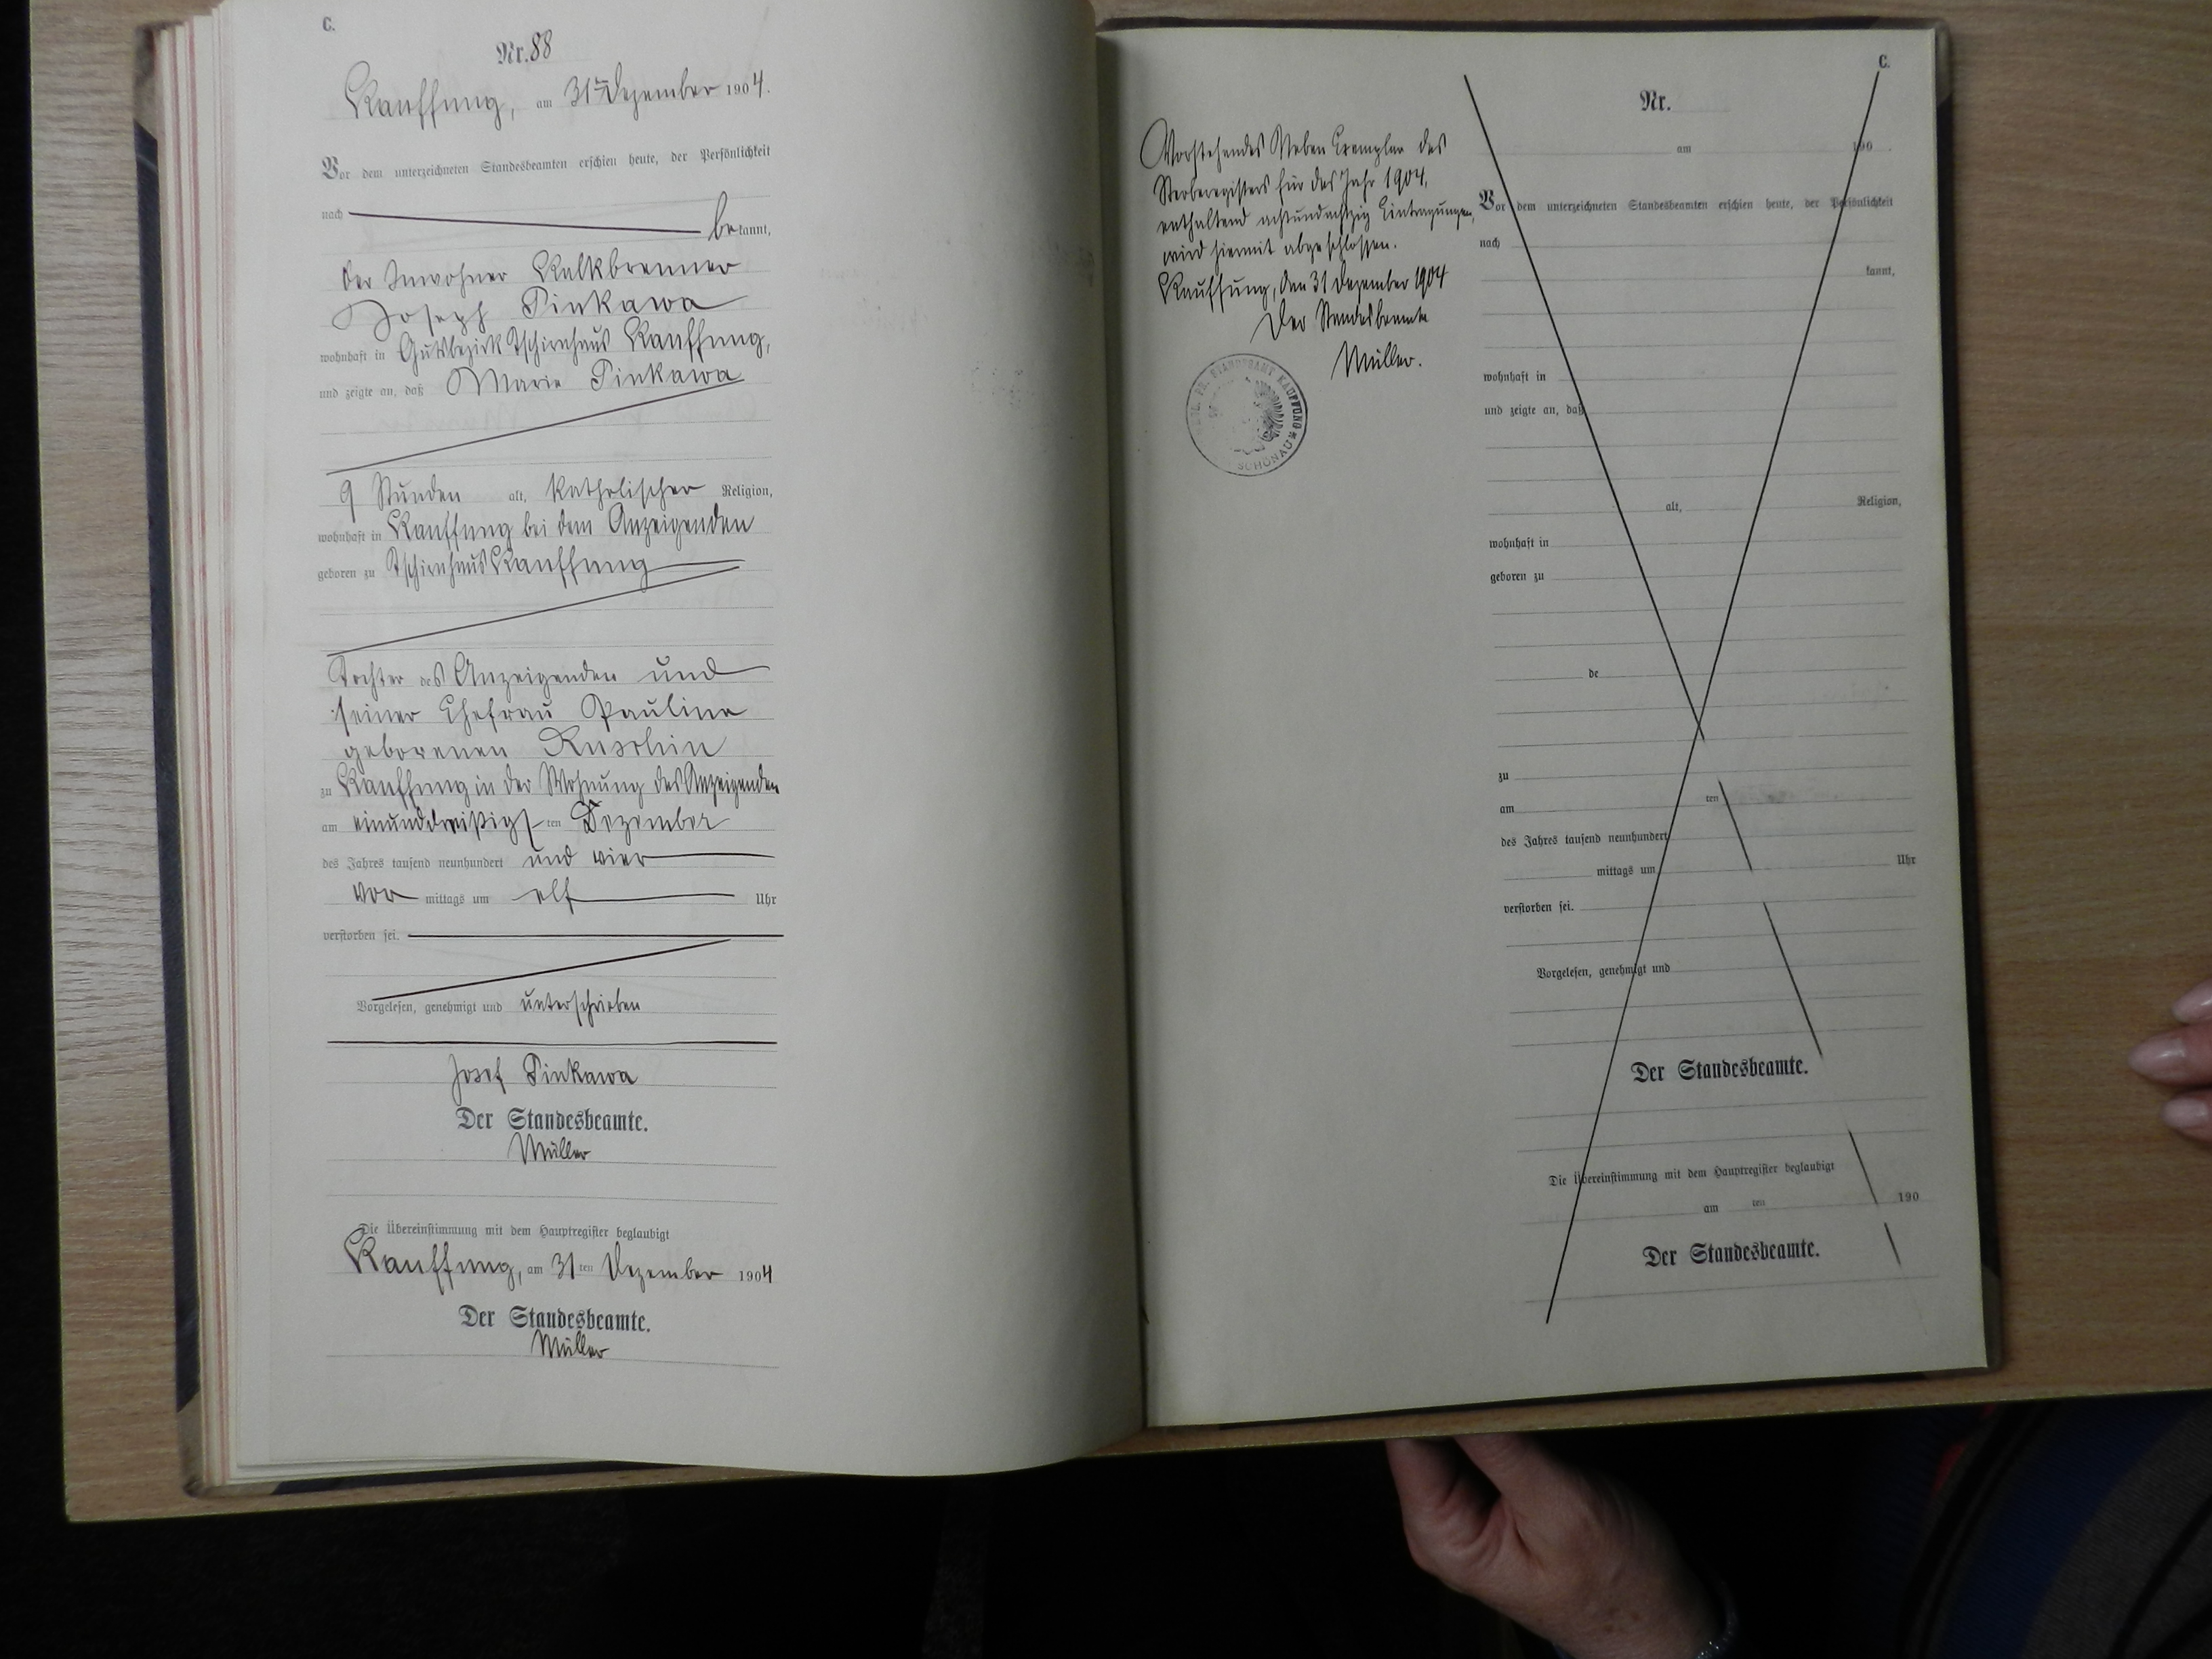 C.
Nr. 88
Kauffung, am 31ten Dezember 1904.
Vor dem unterzeichneten Standesbeamten erschien heute, der Persönlichkeit
nach be kannt,
der Inwohner Kalkbrenner
Joseph Pinkawa
wohnhaft in Gutsbezirk Tschirnhaus Kauffung,
und zeigte an, daß Marie Pinkawa
9 Stunden alt, katholischer Religion,
wohnhaft in Kauffung bei dem Anzeigenden
geboren zu Tschirnhaus Kauffung
Tochter des Anzeigenden und
seiner Ehefrau Pauline
geborenen
zu Kauffung in der Wohnung des Anzeigenden
am einunddreißigsten Dezember
des Jahres tausend neunhundert und vier
vor mittags um elf Uhr
verstorben sei.
Vorgelesen, genehmigt und unterschrieben
Josef Pinkawa
Der Standesbeamte.
Müller
Die Übereinstimmung mit dem Hauptregister beglaubigt
Kauffung, am 31 ten Dezember 1904
Der Standesbeamte.
Müller
Vorstehendes Neben Exemplar des
Sterberegisters für das Jahr 1904,
enthaltend achtundachtzig Eintragungen,
wird hiermit abgeschlossen.
Kauffung, den 31 Dezember 1904
Der Standesbeamte
Müller.
PR. STANDESAMT KAUFFUNG * SCHÖNAU
C.
Nr.
am 190 .
Vor dem unterzeichneten Standesbeamten erschien heute, der Persönlichkeit
nach
kannt,
wohnhaft in
und zeigte an, daß
alt, Religion,
wohnhaft in
geboren zu
de
zu
am ten
des Jahres tausend neunhundert
mittags um Uhr
verstorben sei.
Vorgelesen, genehmigt und
Der Standesbeamte.
Die Übereinstimmung mit dem Hauptregister beglaubigt
am ten 190
Der Standesbeamte.